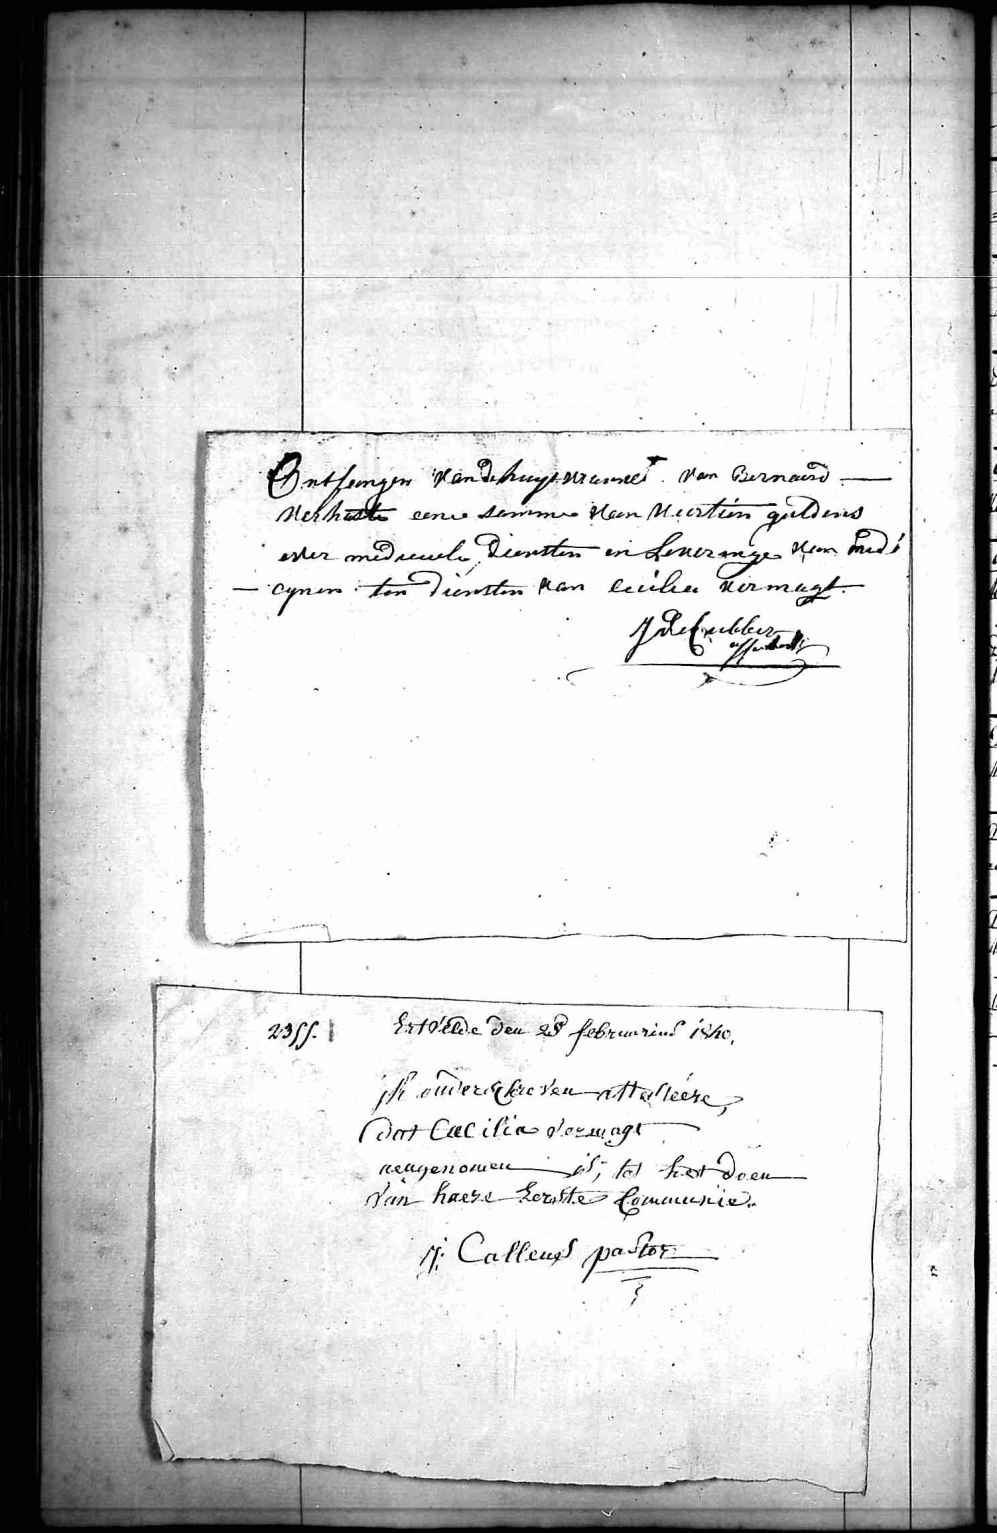 Ontfangen van de huysvrauwe van Bernard
verhaste eene somme van veertien guldens
over medicaele diensten en Leveringe van medi
cynen ten diensten van Cecilia vermagt.
J De Cubber
2355.
Ertvelde den 28 februarius 1840,
ik onderschreven attesteére,
dat Caecilia Vermagt
aengenomen is, tot het doen
van haere Eerste Communie.
J: Callens pastor